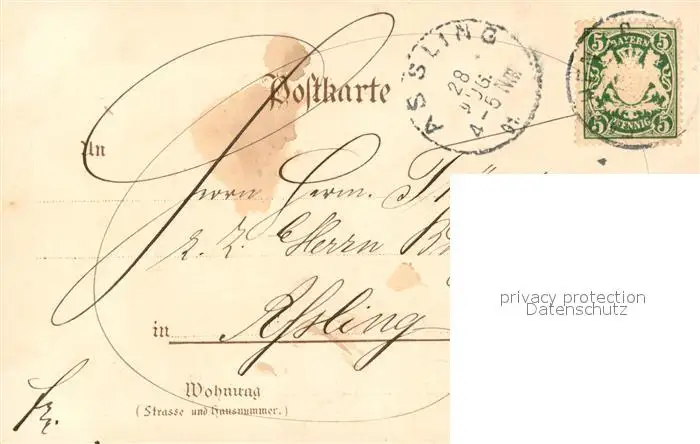 Postkarte
ASSLING
28
AUG.
4-5 NM
BAYERN
5 5
5 5
PFENNIG
An
Herrn Herm.
z. Z. Herrn
in Assling
Wohnung
(Strasse und Hausnummer.)
privacy protection
Datenschutz